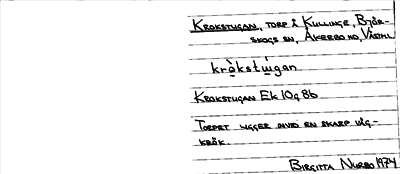 KROKSTUGAN, TORP Å KULLINGE, BJÖR-
SKOGS SN, ÅKERBO HD, VÄSTML
krò̱kstu̱gan
KROKSTUGAN EK 10g 8b
TORPET LIGGER INVID EN SKARP VÄG-
KRÖK.
BIRGITTA NURBO 1974